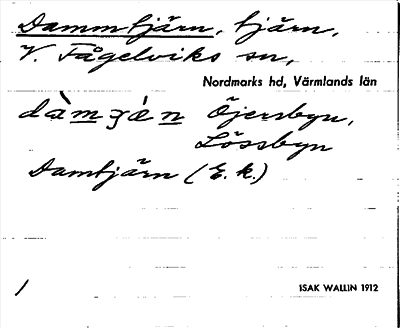 Dammtjärn, tjärn,
V. Fågelviks sn,
Nordmarks hd, Värmlands län
dàmʒæ̀n Öjersbyn,
Lössbyn
Damtjärn (E. k.)
/
ISAK WALLIN 1912